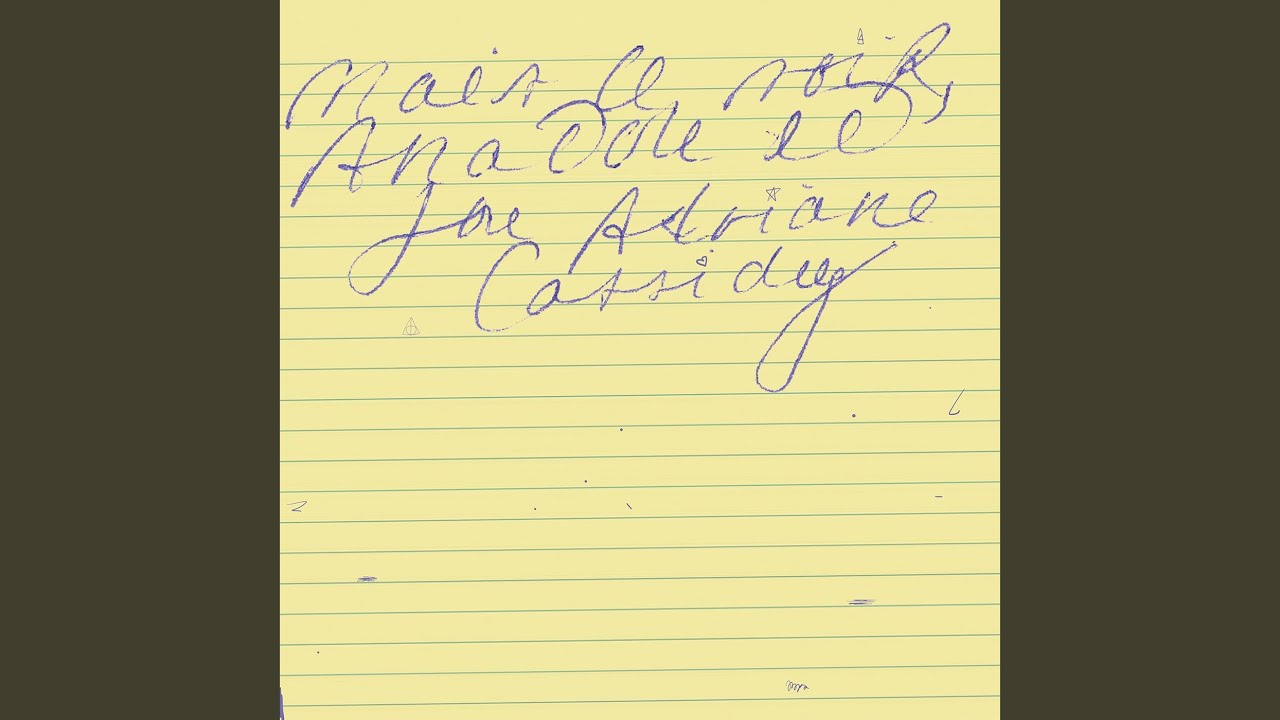 Mais ce soir,
Anatole et
Joe Adriane
Cassidy